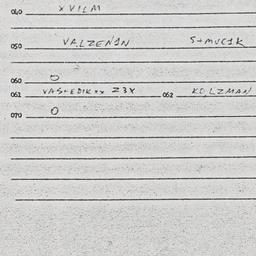 040 X VILM
050 VALZENIN S+MUCIK
060 O
061 VAS+EDIK XX Z3X 062 KO,LZMAN
070 O